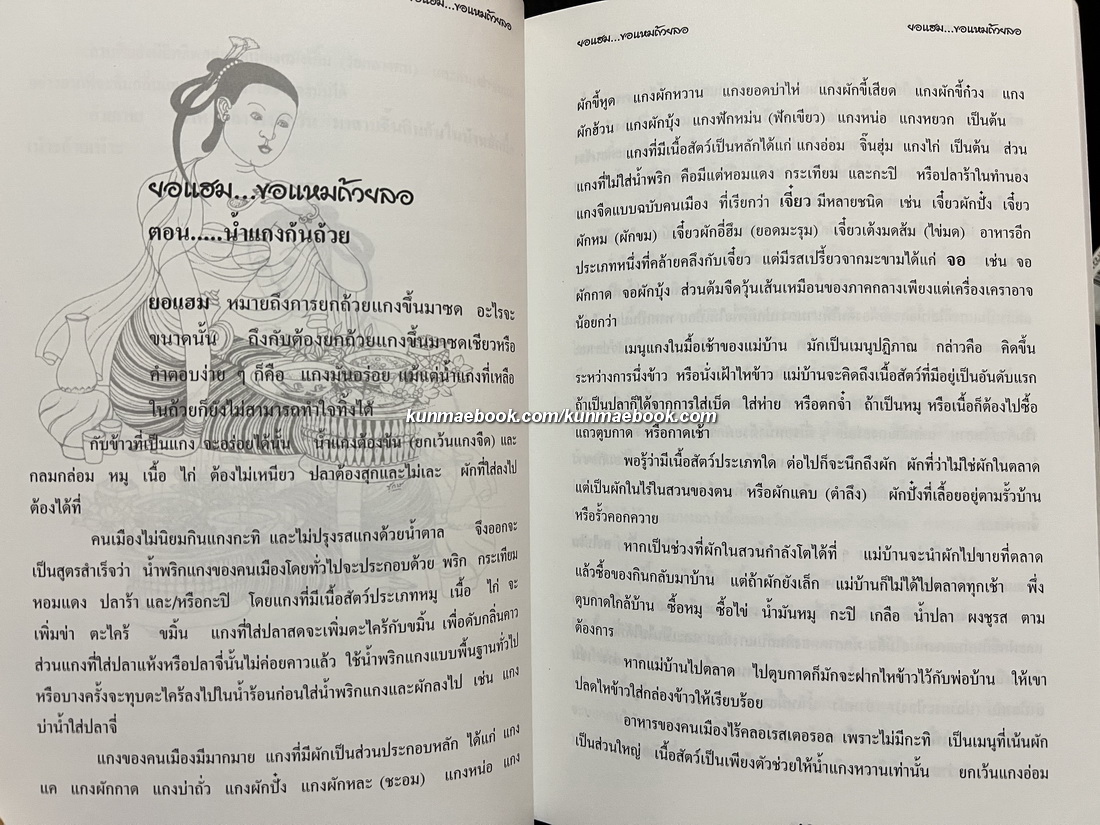 ยอแฮม...ขอแหมถ้วยลอ
ยอแฮม...ขอแหมถ้วยลอ
ตอน.....น้ำแกงก้นถ้วย
ยอแฮม หมายถึงการยกถ้วยแกงขึ้นมาซด อะไรจะ
ขนาดนั้น ถึงกับต้องยกถ้วยแกงขึ้นมาซดเชียวหรือ
คำตอบง่าย ๆ ก็คือ แกงมันอร่อย แม้แต่น้ำแกงที่เหลือ
ในถ้วยก็ยังไม่สามารถทำใจทิ้งได้
กับข้าวที่เป็นแกง จะอร่อยได้นั้น น้ำแกงต้องข้น (ยกเว้นแกงจืด) และ
กลมกล่อม หมู เนื้อ ไก่ ต้องไม่เหนียว ปลาต้องสุกและไม่เละ ผักที่ใส่ลงไป
ต้องได้ที่
คนเมืองไม่นิยมกินแกงกะทิ และไม่ปรุงรสแกงด้วยน้ำตาล จึงออกจะ
เป็นสูตรสำเร็จว่า น้ำพริกแกงของคนเมืองโดยทั่วไปจะประกอบด้วย พริก กระเทียม
หอมแดง ปลาร้า และ/หรือกะปิ โดยแกงที่มีเนื้อสัตว์ประเภทหมู เนื้อ ไก่ จะ
เพิ่มข่า ตะไคร้ ขมิ้น แกงที่ใส่ปลาสดจะเพิ่มตะไคร้กับขมิ้น เพื่อดับกลิ่นคาว
ส่วนแกงที่ใส่ปลาแห้งหรือปลาจี่นั้นไม่ค่อยคาวแล้ว ใช้น้ำพริกแกงแบบพื้นฐานทั่วไป
หรือบางครั้งจะทุบตะไคร้ลงไปในน้ำร้อนก่อนใส่น้ำพริกแกงและผักลงไป เช่น แกง
บ่าน้ำใส่ปลาจี่
แกงของคนเมืองมีมากมาย แกงที่มีผักเป็นส่วนประกอบหลัก ได้แก่ แกง
แค แกงผักกาด แกงบ่าถั่ว แกงผักปั๋ง แกงผักหละ (ชะอม) แกงหน่อ แกง
ยอแฮม...ขอแหมถ้วยลอ ยอแฮม...ขอแหมถ้วยลอ
ผักขี้หูด แกงผักหวาน แกงยอดบ่าไห่ แกงผักขี้เสียด แกงผักขี้ก๋วง แกง
ผักฮ้วน แกงผักบุ้ง แกงฟักหม่น (ฟักเขียว) แกงหน่อ แกงหยวก เป็นต้น
แกงที่มีเนื้อสัตว์เป็นหลักได้แก่ แกงอ่อม จิ๊นฮุ่ม แกงไก่ เป็นต้น ส่วน
แกงที่ไม่ใส่น้ำพริก คือมีแต่หอมแดง กระเทียม และกะปิ หรือปลาร้าในทำนอง
แกงจืดแบบฉบับคนเมือง ที่เรียกว่า เจี๋ยว มีหลายชนิด เช่น เจี๋ยวผักปั๋ง เจี๋ยว
ผักหม (ผักขม) เจี๋ยวผักอี่ฮึม (ยอดมะรุม) เจี๋ยวเต้งมดส้ม (ไข่มด) อาหารอีก
ประเภทหนึ่งที่คล้ายคลึงกับเจี๋ยว แต่มีรสเปรี้ยวจากมะขามได้แก่ จอ เช่น จอ
ผักกาด จอผักบุ้ง ส่วนต้มจืดวุ้นเส้นเหมือนของภาคกลางเพียงแต่เครื่องเคราอาจ
น้อยกว่า
เมนูแกงในมื้อเช้าของแม่บ้าน มักเป็นเมนูปฏิภาณ กล่าวคือ คิดขึ้น
ระหว่างการนึ่งข้าว หรือนั่งเฝ้าไหข้าว แม่บ้านจะคิดถึงเนื้อสัตว์ที่มีอยู่เป็นอันดับแรก
ถ้าเป็นปลาก็ได้จากการใส่เบ็ด ใส่ห่าย หรือตกจ๋ำ ถ้าเป็นหมู หรือเนื้อก็ต้องไปซื้อ
แถวตูบกาด หรือกาดเช้า
พอรู้ว่ามีเนื้อสัตว์ประเภทใด ต่อไปก็จะนึกถึงผัก ผักที่ว่าไม่ใช่ผักในตลาด
แต่เป็นผักในไร่ในสวนของตน หรือผักแคบ (ตำลึง) ผักปั๋งที่เลื้อยอยู่ตามรั้วบ้าน
หรือรั้วคอกควาย
หากเป็นช่วงที่ผักในสวนกำลังโตได้ที่ แม่บ้านจะนำผักไปขายที่ตลาด
แล้วซื้อของกินกลับมาบ้าน แต่ถ้าผักยังเล็ก แม่บ้านก็ไม่ได้ไปตลาดทุกเช้า พึ่ง
ตูบกาดใกล้บ้าน ซื้อหมู ซื้อไข่ น้ำมันหมู กะปิ เกลือ น้ำปลา ผงชูรส ตาม
ต้องการ
หากแม่บ้านไปตลาด ไปตูบกาดก็มักจะฝากไหข้าวไว้กับพ่อบ้าน ให้เขา
ปลดไหข้าวใส่กล่องข้าวให้เรียบร้อย
อาหารของคนเมืองไร้คลอเรสเตอรอล เพราะไม่มีกะทิ เป็นเมนูที่เน้นผัก
เป็นส่วนใหญ่ เนื้อสัตว์เป็นเพียงตัวช่วยให้น้ำแกงหวานเท่านั้น ยกเว้นแกงอ่อม
kunmaebook.com/kunmaebook.com